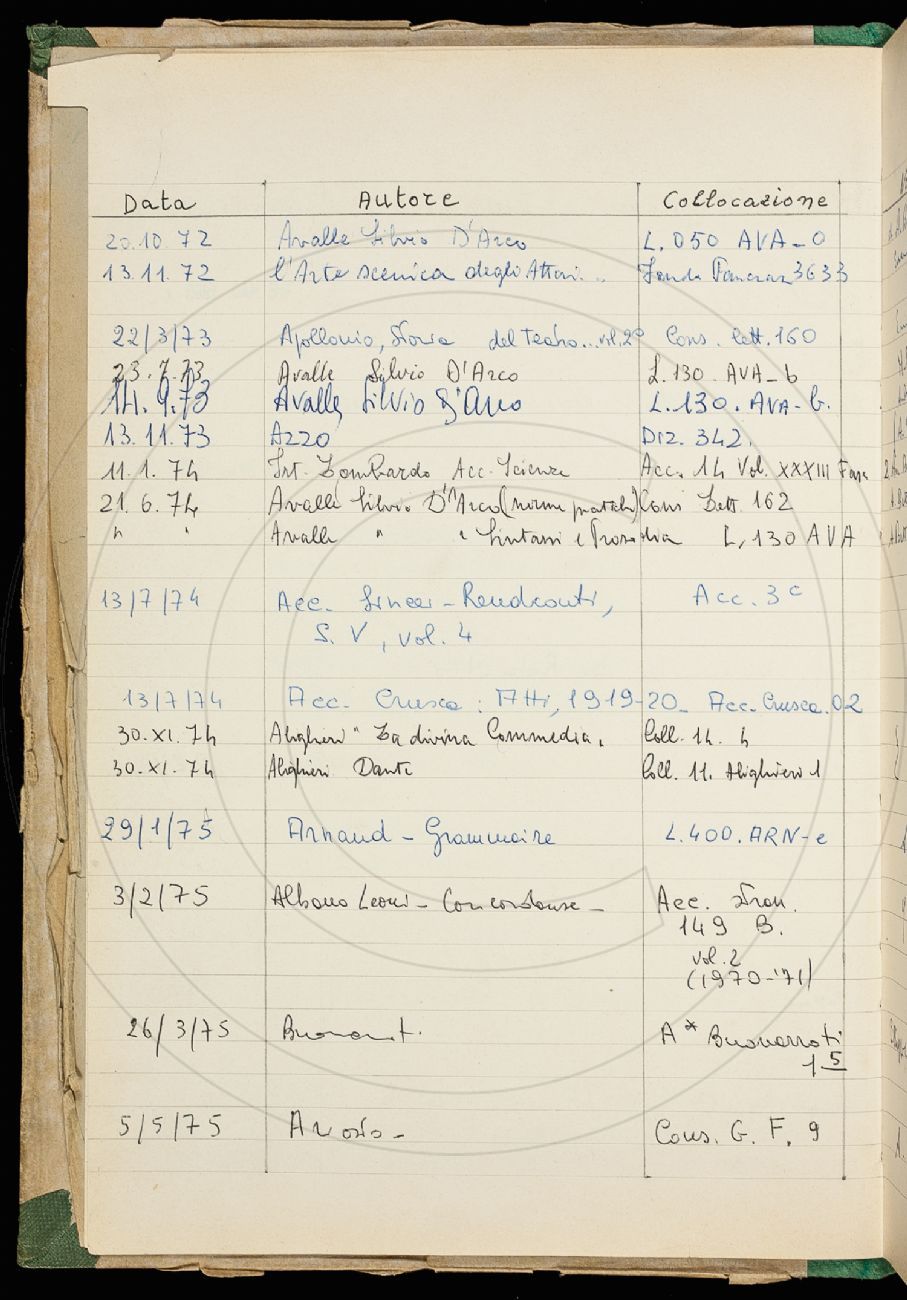 Data Autore Collocazione
20.10.72 Avalle Silvio D'Arco L. 050 AVA-0
13.11.72 l'Arte scenica degli Attori... Fondo 3633
22/3/73 Apollonio, Storia del teatro..vol.2° Cons. lett. 160
23.7.73 Avalle Silvio D'Arco L.130 AVA-b
14.9.73 Avalle Silvio D'Arco L.130. AVA-b.
13.11.73 Azzo Diz. 342.
11.1.74 Ist. Lombardo Acc. Scienze Acc. 14 Vol. XXXIII
21.6.74 Avalle Silvio D'Arco (norme Cons Lett. 162
" " Avalle " " Sintassi e Prosodia L, 130 AVA
13/7/74 Acc. Lincei-Rendiconti, Acc. 3c
S. V, vol. 4
13/7/74 Acc. Crusca: Atti, 1919-20_ Acc. Crusca. 02
30.XI.74 Alighieri "La divina Commedia. Coll. 14. 4
30.XI.74 Alighieri Dante Coll. 11. Alighieri 1
29/1/75 Arnaud - Grammaire L.400.ARN-e
3/2/75 Albano Leoni - Concordanze - Acc. Stran.
149 B.
vol. 2
(1970-'71)
26/3/75 Buonarroti A* Buonarroti
1 5
5/5/75 Cons. G. F. 9